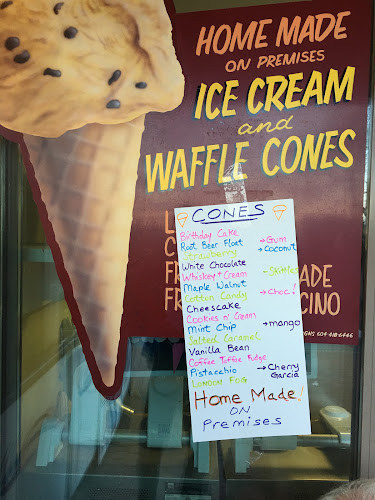 HOME MADE
ON PREMISES
ICE CREAM
and
WAFFLE CONES
CONES
Birthday Cake → Gum
Root Beer Float → Coconut
Strawberry
White Chocolate
Whiskey + Cream - Skittles
Maple Walnut
Cotton Candy → Choc!
Cheescake
Cookies n' Cream
Mint Chip → mango
Salted Caramel
Vanilla Bean
Coffee Toffee Fudge
Pistacchio → Cherry Garcia
LONDON FOG
Home Made!
ON
Premises
ADE
CINO